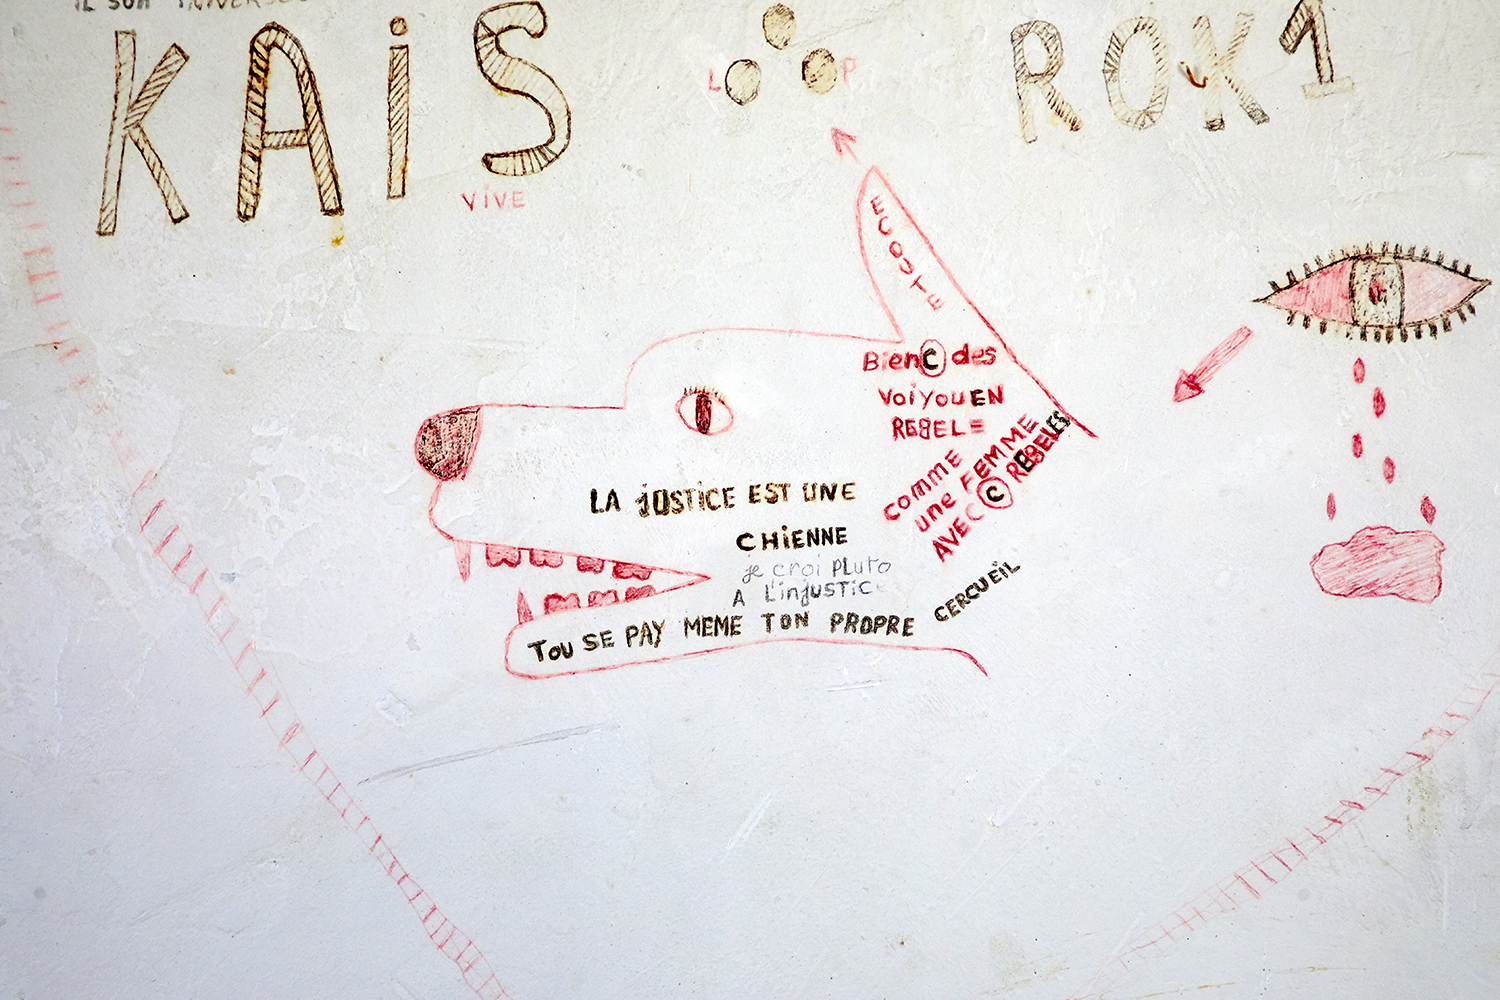 IL SON
KAiS
ROK1
L P
ViVE
ECOUTE
Bien C des
VoiyouEN
REBELE
COMME
une FEMME
AVEC C REBELES
LA jUSTiCE EST UNE
CHiENNE
je croi PLuTo
A L'injuSTiCe
TOU SE PAY MEME TON PROPRE CERCUEiL